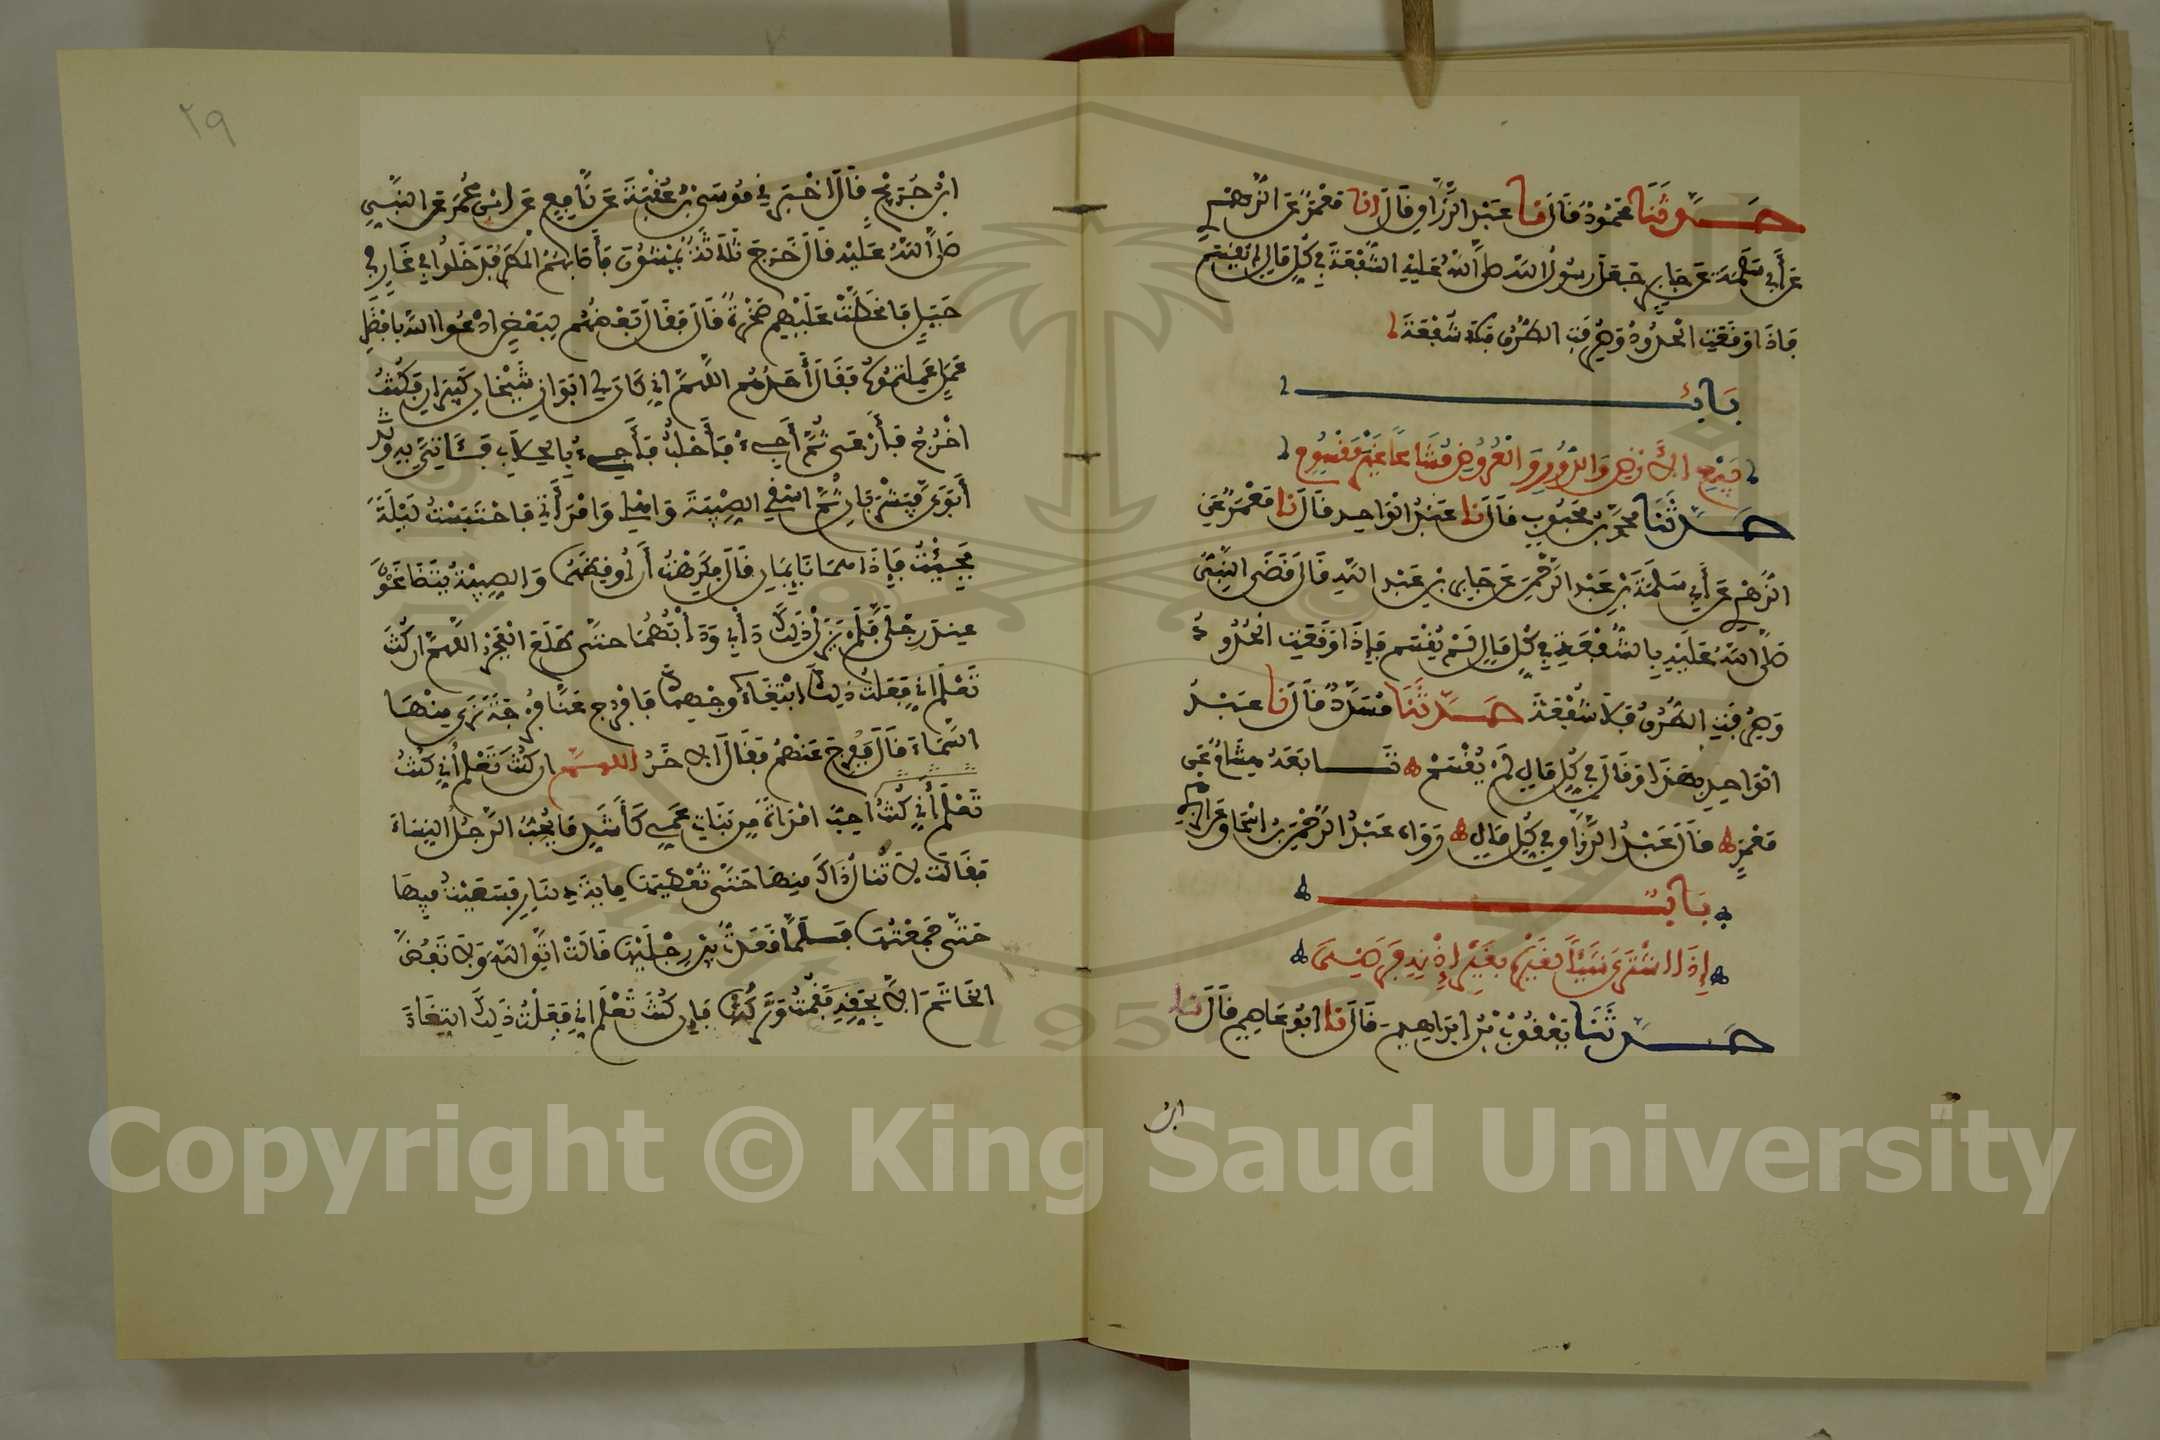 حدثنا محمود قال نا عبد الرزاق قال انا معمر عن الزهري
عن أبي سلمة عن جابر جعل رسول الله صلى الله عليه الشفعة في كل مال لم يقسم
فإذا وقعت الحدود وصرفت الطرق فلا شفعة
باب
بيع الأرض والدور والعروض مشاعا غير مقسوم
حدثنا محمد بن محبوب قال نا عبد الواحد قال نا معمر عن
الزهري عن أبي سلمة بن عبد الرحمن عن جابر بن عبد الله قال قضى النبي
صلى الله عليه بالشفعة في كل مال لم يقسم فإذا وقعت الحدود
وصرفت الطرق فلا شفعة حدثنا مسدد قال نا عبد
الواحد بهذا وقال في كل مال لم يقسم تابعه هشام عن
معمر قال عبد الرزاق في كل مال رواه عبد الرحمن بن إسحاق عن الزهري
باب
إذا اشترى شيئا لغيره بغير إذنه فرضي
حدثنا يعقوب بن ابراهيم قال نا ابو عاصم قال نا
ابن
٢٩
ابن جريج قال أخبرني موسى بن عقبة عن نافع عن ابن عمر عن النبي
صلى الله عليه قال خرج ثلاثة يمشون فأصابهم المطر فدخلوا في غار في
جبل فانحطت عليهم صخرة قال فقال بعضهم لبعض ادعوا الله بأفضل
عمل عملتموه فقال أحدهم اللهم اني كان لي ابوان شيخان كبيران فكنت
اخرج فأرعى ثم أجيء فأحلب فأجيء بالحلاب فآتي به
أبوي فيشربان ثم اسقي الصبية واهلي وامرأتي فاحتبست ليلة
فجئت فإذا هما نايمان قال فكرهت أن أوقظهما والصبية يتضاغون
عند رجلي فلم يزل ذلك دأبي ودأبهما حتى طلع الفجر اللهم ان كنت
تعلم اني فعلت ذلك ابتغاء وجهك فافرج عنا فرجة نرى منها
السماء قال ففرج عنهم فقال الاخر اللهم ان كنت تعلم أني كنت
تعلم أني كنت احب امرأة من بنات عمي كأشد ما يحب الرجل النساء
فقالت لا تنال ذاك منها حتى تعطيها ماية دينار فسعيت فيها
حتى جمعتها فلما قعدت بين رجليها قالت اتق الله ولا تفض
الخاتم الا بحقه فقمت وتركتها فإن كنت تعلم اني فعلت ذلك ابتغاء
Copyright © King Saud University
1957